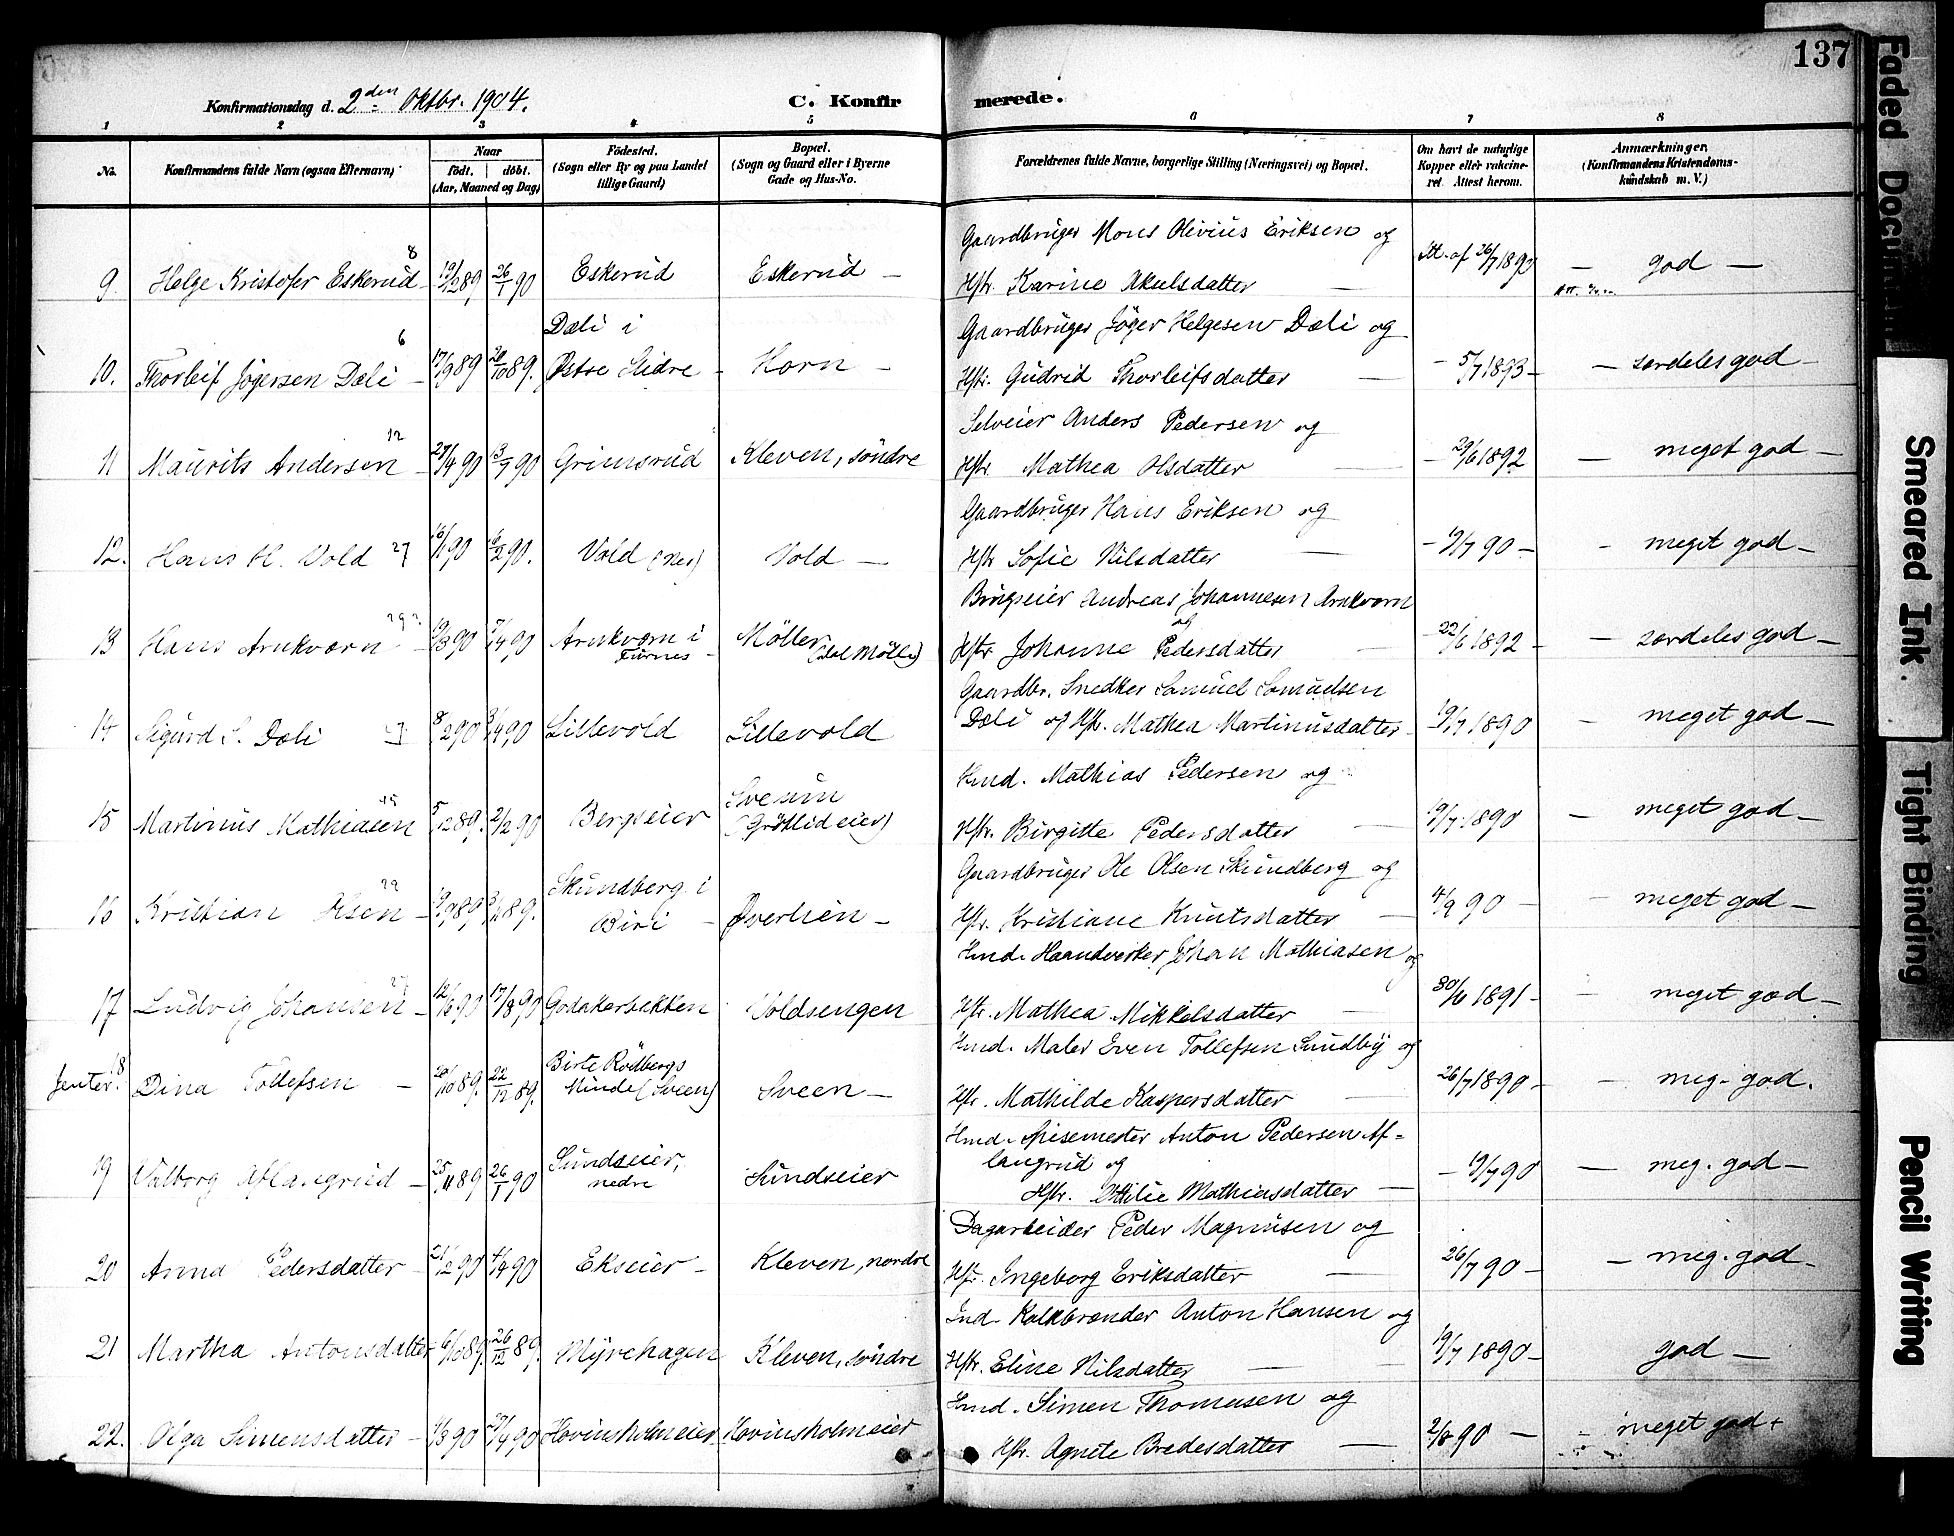 137
Konfirmationsdag d. 2den Oktbr. 1904.
C. Konfirmerede.
1 2 3 4 5 6 7 8
No. Konfirmandens fulde Navn (ogsaa Efternavn) Naar født. døbt. (Aar, Maaned og Dag) Fødested. (Sogn eller By og paa Landet tillige Gaard) Bopæl. (Sogn og Gaard eller i Byerne Gade og Hus-No. Forældrenes fulde Navne, borgerlige Stilling (Næringsvei) og Bopæl. Om havt de naturlige Kopper eller vakcineret. Attest herom. Anmærkninger. (Konfirmandens Kristendomskundskab m. V.)
Gaardbruger Mons Olivius Eriksen og
9. Helge Kristofer Eskerud 8 26/1 90 Eskerud Eskerud — Hstr. Karine Akselsdatter — Att. af 26/7 1890 — god —
Dæli i Gaardbruger Jöger Helgesen Dæli og
10. Thorleif Jögersen Dæli 6 17/9 89 20/10 89. Østre Slidre — Korn — Hstr. Gudrid Thorleifsdatter — 5/7 1893 — særdeles god —
Selveier Anders Pedersen og
11 Maurits Andersen 12 27/4 90 13/7 90 Grimsrud Kleven, söndre Hstr Mathea Olsdatter — 29/6 1892 — meget god —
Gaardbruger Hans Eriksen og
12. Hans H. Vold 27 16/1 90 90. Vold (Nes) Vold — Hstr Sofie Nilsdatter — 9/7 90 — meget god —
Brugseier Andreas Johannesen Arnkværn og
13 Hans Arnkværn 29 19/3 90 7/4 90 Arnkværn i Furnes — Möller Hstr Johanne Pedersdatter — 22/6 1892 — særdeles god —
Gaardbr. Snedker Samuel Samuelsen
14 Sigurd S. Dæli 8/2 90 90 Lillevold Lillevold Dæli og Hstr. Mathea Martinusdatter 19/7 1890 — meget god —
Hmd. Mathias Pedersen og
15 Martinius Mathiasen 15 5/12 89. 2/2 90 Bergseier Sveum (Grötlideier) Hstr. Birgitte Pedersdatter — 19/7 1890 — meget god —
Gaardbruger Ole Olsen Skundberg og
16 Kristian Olsen — 29 89. Skundberg i Biri — Överlien — Hstr. Kristiane Knutsdatter — 4/9 90 — meget god —
Hmd. Haandverker Johan Mathiasen og
17 Ludvig Johansen — 27 12/6 90 17/8 90 Godakerbakken Voldsengen Hstr. Mathea Mikkelsdatter — 30/6 1891 — meget god —
Hmd. Maler Even Tollefsen Sundby og
Jenter. 18 Dina Tollefsen — 20/10 89. 22/12 89. Birte Rödbergs Minde (Sveen) Sveen — Hstr. Mathilde Kaspersdatter — 26/7 1890 — meg. god.
Hmd. Spisemester Anton Pedersen Aflangrud og
19 Valborg Aflangrud — 25/11 89 26/1 90 Sundseier, nedre Sundseier Hstr. Ottilie Mathiasdatter — 19/7 90 — meg. god —
Dagarbeider Peder Magnusen og
20 Anna Pedersdatter — 21/2 90 4/4 90 Ekseier — Kleven, nordre Hstr. Ingeborg Eriksdatter — 26/7 90 — meg. god —
Ind. Kalkbrænder Anton Hansen og
21 Martha Antonsdatter 6/10 89. 26/12 89. Myrehagen Kleven, söndre Hstr. Eline Nilsdatter — 19/7 1890 — god —
Hmd. Simen Thomesen og
22. Olga Simensdatter — 1/3 90 27/4 90 Hovinsholmeier Hovinsholmeier Hstr. Agnete Bredesdatter — 2/8 90 — meget god
Faded Document
Smeared Ink.
Tight Binding
Pencil Writing